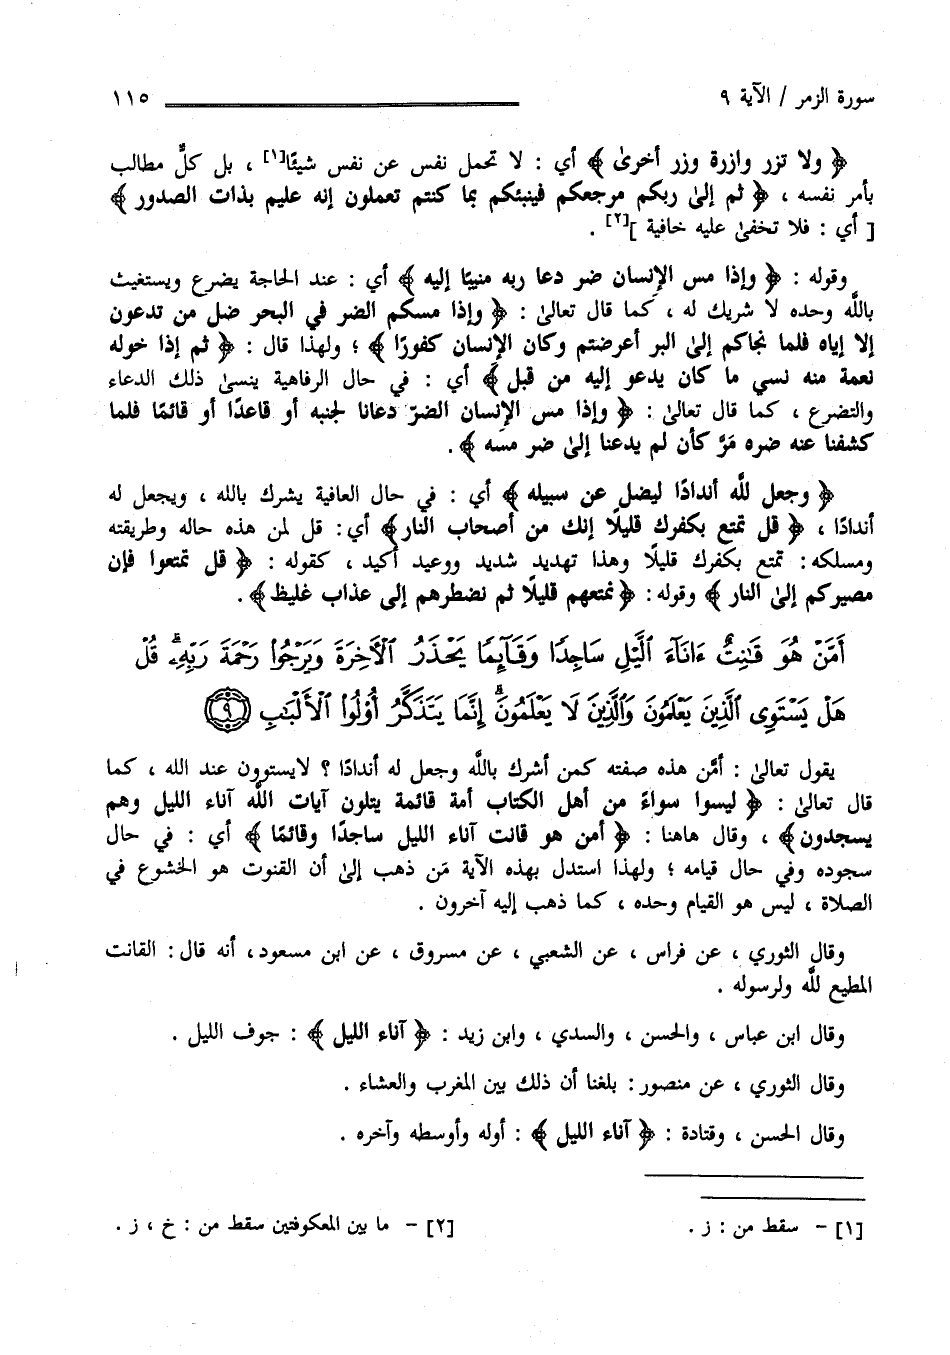 سورة الزمر / الآية ٩ ١١٥
﴿ ولا تزر وازرة وزر أخرىٰ ﴾ أي : لا تحمل نفس عن نفس شيئًا[١] ، بل كلٌّ مطالب
بأمر نفسه ، ﴿ ثم إلىٰ ربكم مرجعكم فينبئكم بما كنتم تعملون إنه عليم بذات الصدور ﴾
[ أي : فلا تخفىٰ عليه خافية ][٢] .
وقوله : ﴿ وإذا مس الإنسان ضر دعا ربه منيبًا إليه ﴾ أي : عند الحاجة يضرع ويستغيث
بالله وحده لا شريك له ، كما قال تعالىٰ : ﴿ وإذا مسكم الضر في البحر ضل من تدعون
إلا إياه فلما نجاكم إلىٰ البر أعرضتم وكان الإنسان كفورًا ﴾ ؛ ولهذا قال : ﴿ ثم إذا خوله
نعمة منه نسي ما كان يدعو إليه من قبل ﴾ أي : في حال الرفاهية ينسىٰ ذلك الدعاء
والتضرع ، كما قال تعالىٰ : ﴿ وإذا مس الإنسان الضرّ دعانا لجنبه أو قاعدًا أو قائمًا فلما
كشفنا عنه ضره مَرَّ كأن لم يدعنا إلىٰ ضر مسّه ﴾ .
﴿ وجعل لله أندادًا ليضل عن سبيله ﴾ أي : في حال العافية يشرك بالله ، ويجعل له
أندادًا ، ﴿ قل تمتع بكفرك قليلًا إنك من أصحاب النار ﴾ أي: قل لمن هذه حاله وطريقته
ومسلكه: تمتع بكفرك قليلًا وهذا تهديد شديد ووعيد أكيد ، كقوله : ﴿ قل تمتعوا فإن
مصيركم إلىٰ النار ﴾ وقوله: ﴿ نمتعهم قليلًا ثم نضطرهم إلى عذاب غليظ ﴾ .
أَمَّنْ هُوَ قَٰنِتٌ ءَانَآءَ ٱلَّيْلِ سَاجِدًا وَقَآئِمًا يَحْذَرُ ٱلْأَخِرَةَ وَيَرْجُوا۟ رَحْمَةَ رَبِّهِۦ ۗ قُلْ
هَلْ يَسْتَوِى ٱلَّذِينَ يَعْلَمُونَ وَٱلَّذِينَ لَا يَعْلَمُونَ ۗ إِنَّمَا يَتَذَكَّرُ أُو۟لُوا۟ ٱلْأَلْبَٰبِ ۝٩
يقول تعالىٰ : أمَّن هذه صفته كمن أشرك بالله وجعل له أندادًا ؟ لايستوون عند الله ، كما
قال تعالىٰ : ﴿ ليسوا سواءً من أهل الكتاب أمة قائمة يتلون آيات الله آناء الليل وهم
يسجدون ﴾ ، وقال هاهنا : ﴿ أمن هو قانت آناء الليل ساجدًا وقائمًا ﴾ أي : في حال
سجوده وفي حال قيامه ؛ ولهذا استدل بهذه الآية مَن ذهب إلىٰ أن القنوت هو الخشوع في
الصلاة ، ليس هو القيام وحده ، كما ذهب إليه آخرون .
وقال الثوري ، عن فراس ، عن الشعبي ، عن مسروق ، عن ابن مسعود، أنه قال: القانت
المطيع لله ولرسوله .
وقال ابن عباس ، والحسن ، والسدي ، وابن زيد : ﴿ آناء الليل ﴾ : جوف الليل .
وقال الثوري ، عن منصور: بلغنا أن ذلك بين المغرب والعشاء .
وقال الحسن ، وقتادة : ﴿ آناء الليل ﴾ : أوله وأوسطه وآخره .
[١] - سقط من : ز . [٢] - ما بين المعكوفتين سقط من : خ ، ز .